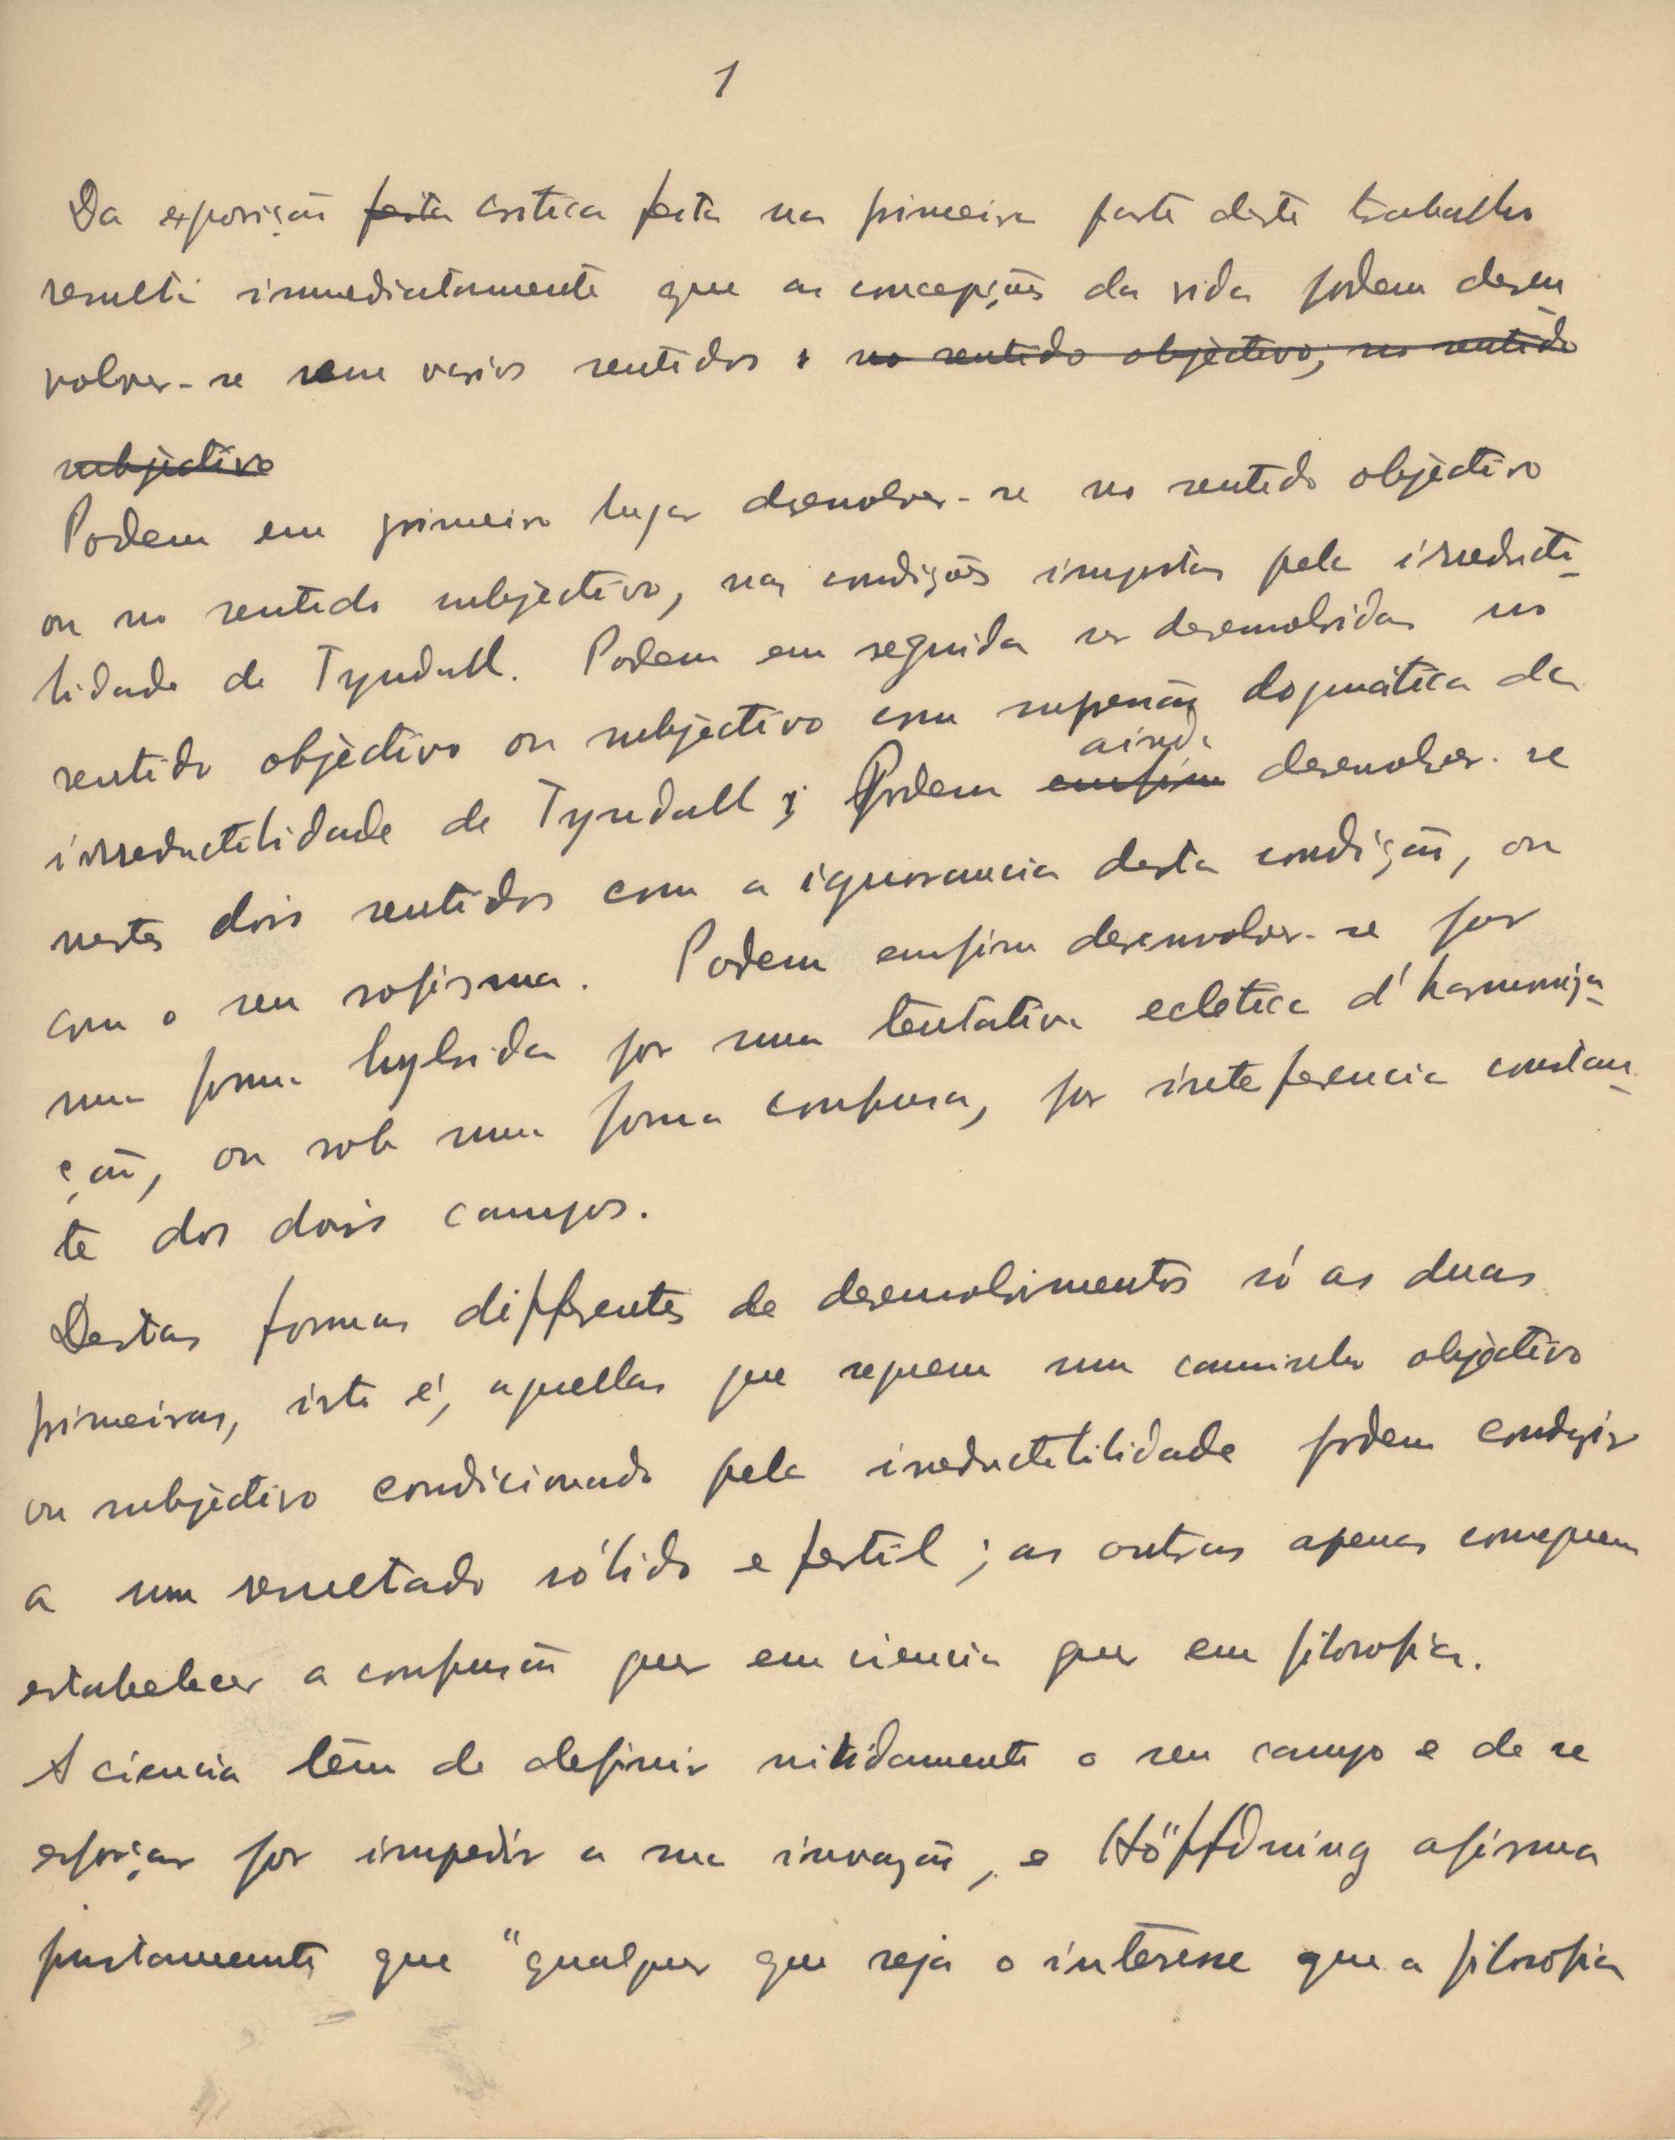 1
Da exposição feita critica feita na primeira parte deste trabalho
resulta immediatamente que as concepções da vida podem desen
volver-se em varios sentidos : no sentido objectivo, no sentido
subjectivo
Podem em primeiro lugar desenvolver-se no sentido objectivo
ou no sentido subjectivo, nas condições impostas pela irreducti-
lidade de Tyndall. Podem em seguida ser desenvolvidas no
sentido objectivo ou subjectivo com supressão dogmática da
ainda
irreductilidade de Tyndall ; Podem emfim desenvolver-se
nestes dois sentidos com a ignorancia desta condição, ou
com o seu sofisma. Podem emfim desenvolver-se por
uma forma hybrida por uma tentativa ecletica d'harmoniza-
ção, ou sob uma forma confusa, por inteferencia constan-
te dos dois campos.
Destas formas differentes de desenvolvimentos só as duas
primeiras, isto é, aquellas que seguem um caminho objectivo
ou subjectivo condicionado pela irreductilidade podem conduzir
a um resultado sólido e fertil ; as outras apenas conseguem
estabelecer a confusão quer em ciencia quer em filosofia.
A ciencia têm de definir nitidamente o seu campo e de se
esforçar por impedir a sua invasão, e Höffdning afirma
justamente que "qualquer que seja o interesse que a filosofia